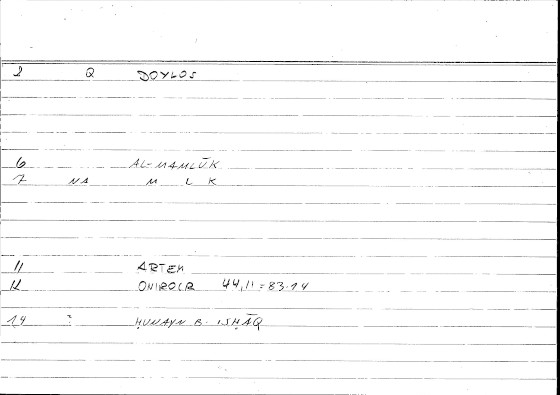 2 Q DOYLOS
6 AL-MAMLŪK
7 NA M L K
11 ARTEM
12 ONIROCR 44,11 = 83.14
14 ? ḤUNAYN B. ISḤĀQ